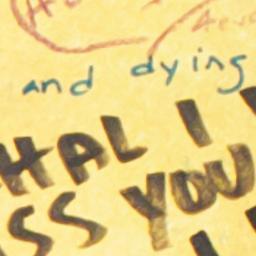 and dying
HAL I
SS YOU